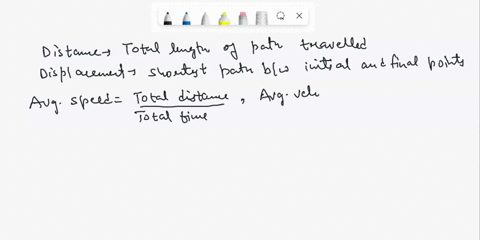 Distance → Total length of path travelled
Displacement → shortest path b/w initial and final points
Avg. speed = Total distance / Total time , Avg. velo